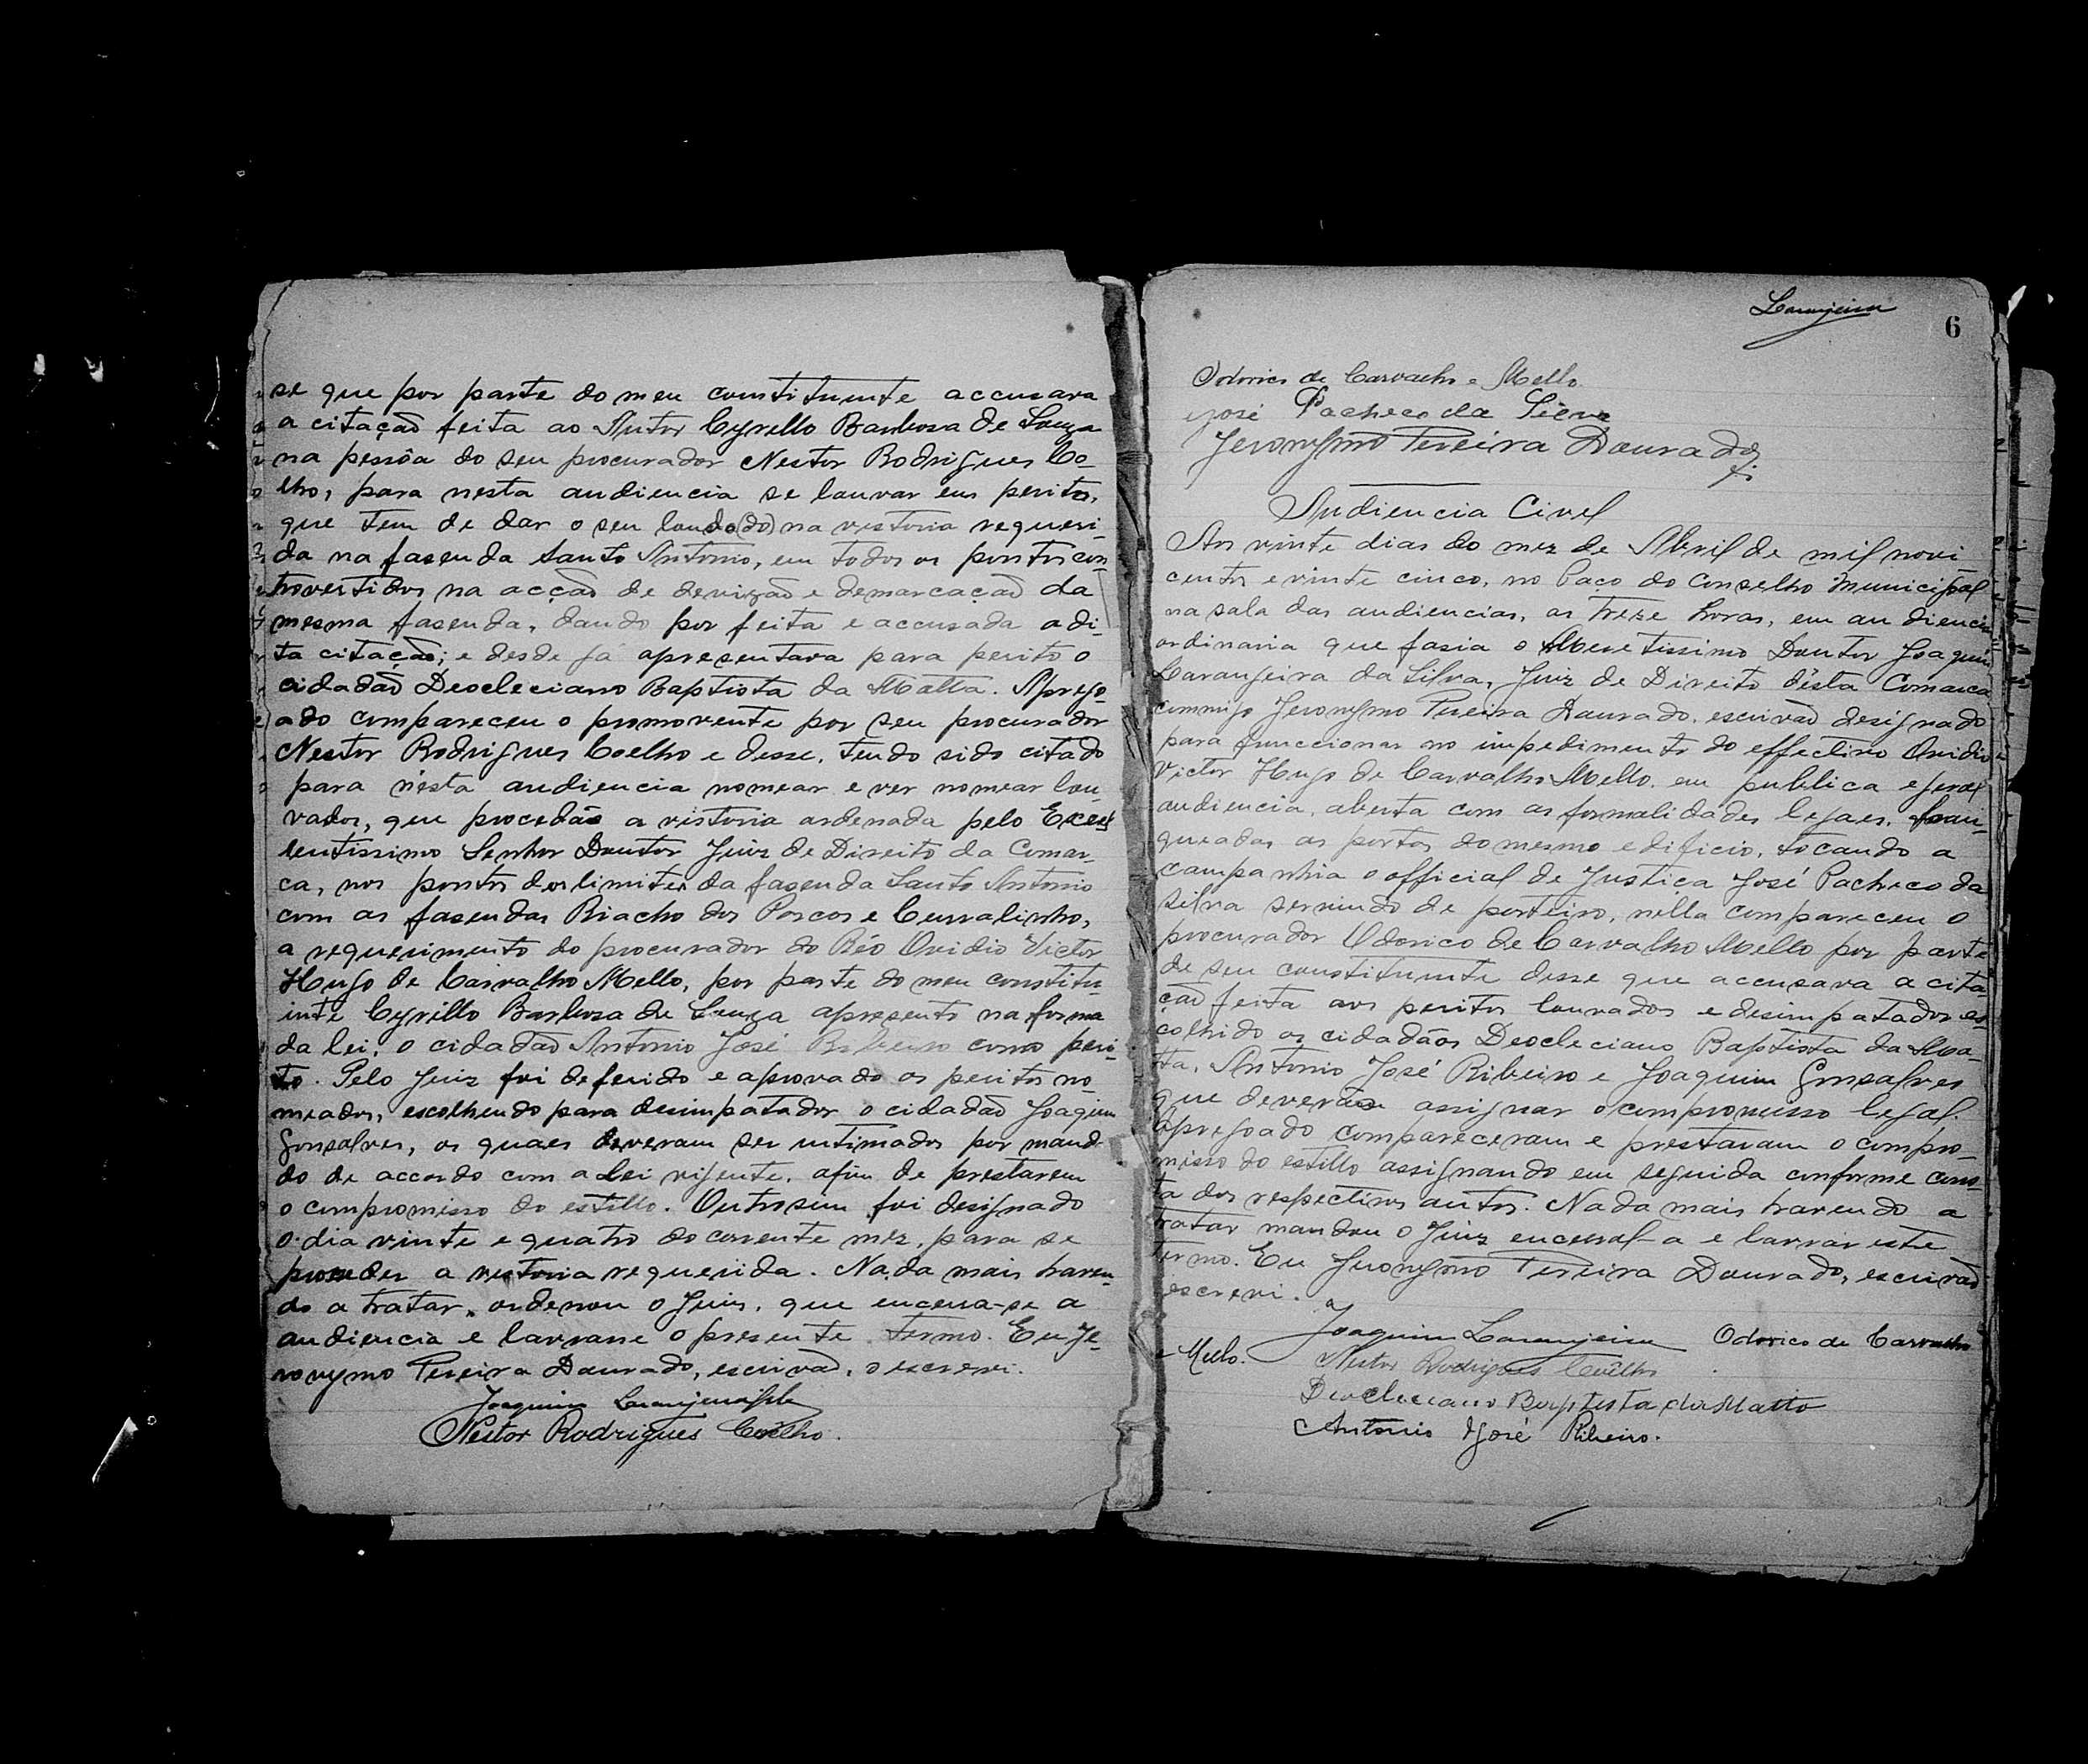 se que por parte do meu constituinte accusara
a citação feita ao Autor Cyrillo Barbosa de Souza
na pessôa do seu procurador Nestor Rodrigues Co-
elho, para nesta audiencia se louvar em peritos,
que tem de dar o seu laudo (do) na vestoria requeri-
da na fasenda Santo Antonio, em todos os pontos con-
trovertidos na acção de devizão e demarcação da
mesma fasenda, dando por feita e accusada a di-
ta citação; e desde já apresentava para perito o
cidadão Deocleciano Baptista da Matta. Aprego-
ado compareceu o promovente por seu procurador
Nestor Rodrigues Coelho e desse, tendo sido citado
para nésta audiencia nomear e ver nomear lou-
vados, que procedão a vistoria ordenada pelo Excel-
lentissimo Senhor Doutor Juiz de Direito da Comar-
ca, nos pontos dos limites da fasenda Santo Antonio
com as fasendas Riacho dos Porcos e Curralinho,
a requerimento do procurador do Réo Ovidio Victor
Hugo de Carvalho Mello, por parte do meu constitu-
inte Cyrillo Barbosa de Souza apresento na forma
da lei, o cidadão Antonio José Ribeiro como peri-
to. Pelo Juiz foi deferido e aprovado os peritos no-
meados, escolhendo para desimpatador o cidadão Joaquim
Gonsalves, os quaes deveram ser intimados por manda-
do de accordo com a Lei vigente, afim de prestarem
o compromisso do estillo. Outrosim foi designado
o dia vinte e quatro do corrente mez, para se
proceder a vestoria requerida. Nada mais haven-
do a tratar, ordenou o Juiz, que encerra-se a
audiencia e lavrasse o presente termo. Eu Je-
ronymo Pereira Dourado, escrivão, o escrevi.
Joaquim Laranjeira Silva
Nestor Rodrigues Coêlho.
Laranjeira
6
Odorico de Carvalho e Mello
José Pacheco da Silva
Jeronymo Pereira Dourado
Audiencia Civel
Aos vinte dias do mez de Abril de mil novi-
centos e vinte cinco, no Paço do Conselho Municipal
na sala das audiencias, as treze horas, em audiencia
ordinaria que fasia o Meretissimo Doutor Joaquim
Laranjeira da Silva, Juiz de Direito désta Comarca
commigo Jeronymo Pereira Dourado, escrivão designado
para funccionar no impedimento do effectivo Ovidio
Victor Hugo de Carvalho Mello, em publica e geral
audiencia, aberta com as formalidades legaes, fran-
queadas as portas do mesmo edificio, tocando a
campanhia o official de Justiça José Pacheco da
Silva servindo de porteiro, nella compareceu o
procurador Odorico de Carvalho Mello por parte
de seu constituinte desse que accusava a cita-
ção feita aos peritos louvados e desimpatador es-
colhido os cidadãos Deocleciano Baptista da Ma-
tta, Antonio José Ribeiro e Joaquim Gonsalves
que deverão assignar o compromisso legal.
Apregoado compareceram e prestaram o compro-
misso do estillo assignando em seguida conforme cons-
ta dos respectivos autos. Nada mais havendo a
tratar mandou o Juiz encerral-a e lavrar este
termo. Eu Jeronymo Pereira Dourado, escrivão
escrevi.
Joaquim Laranjeira Odorico de Carvalho
e Mello.
Nestor Rodrigues Coêlho
Deocleciano Baptista da Matta
Antonio José Ribeiro.